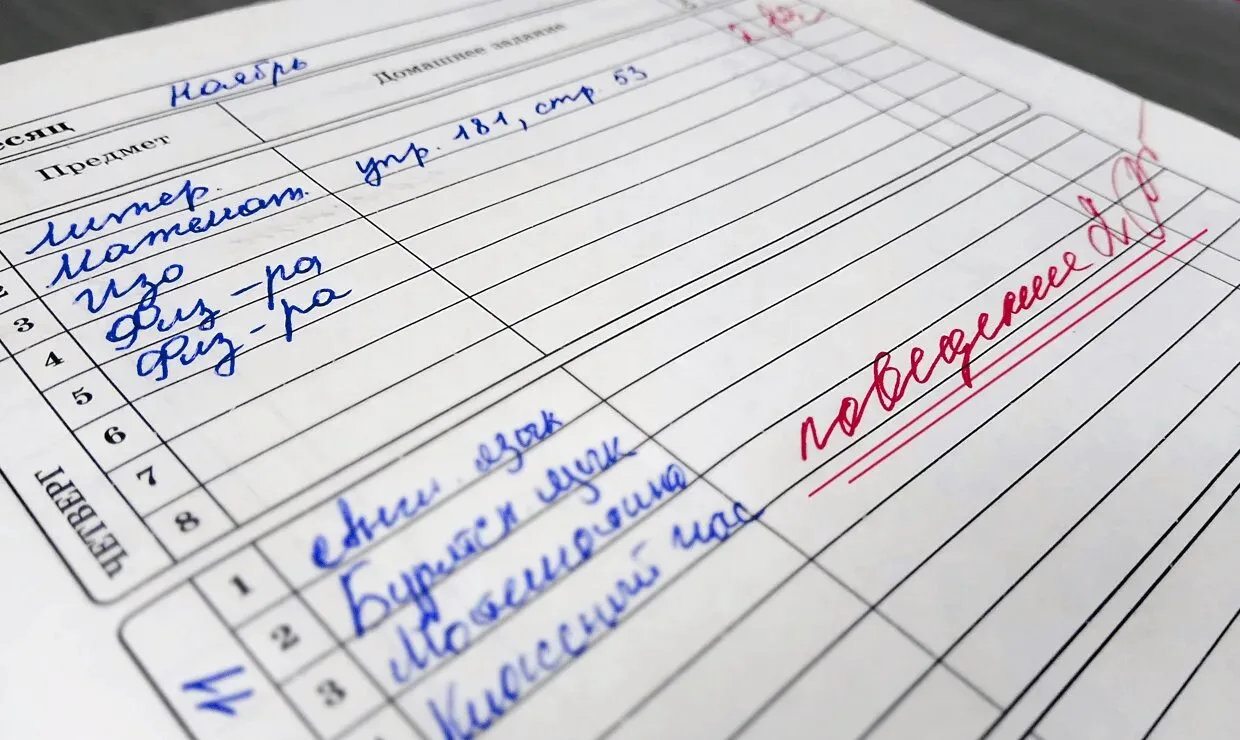 месяц ноябрь
Предмет Домашнее задание
литер.
2 Математ. упр. 181, стр. 53
3 Изо
4 Физ-ра
5 Физ-ра
6
7
8
ЧЕТВЕРГ
поведение 2
1 Англ. язык
2 Бурятск язык
3 Математика
Классный час
11